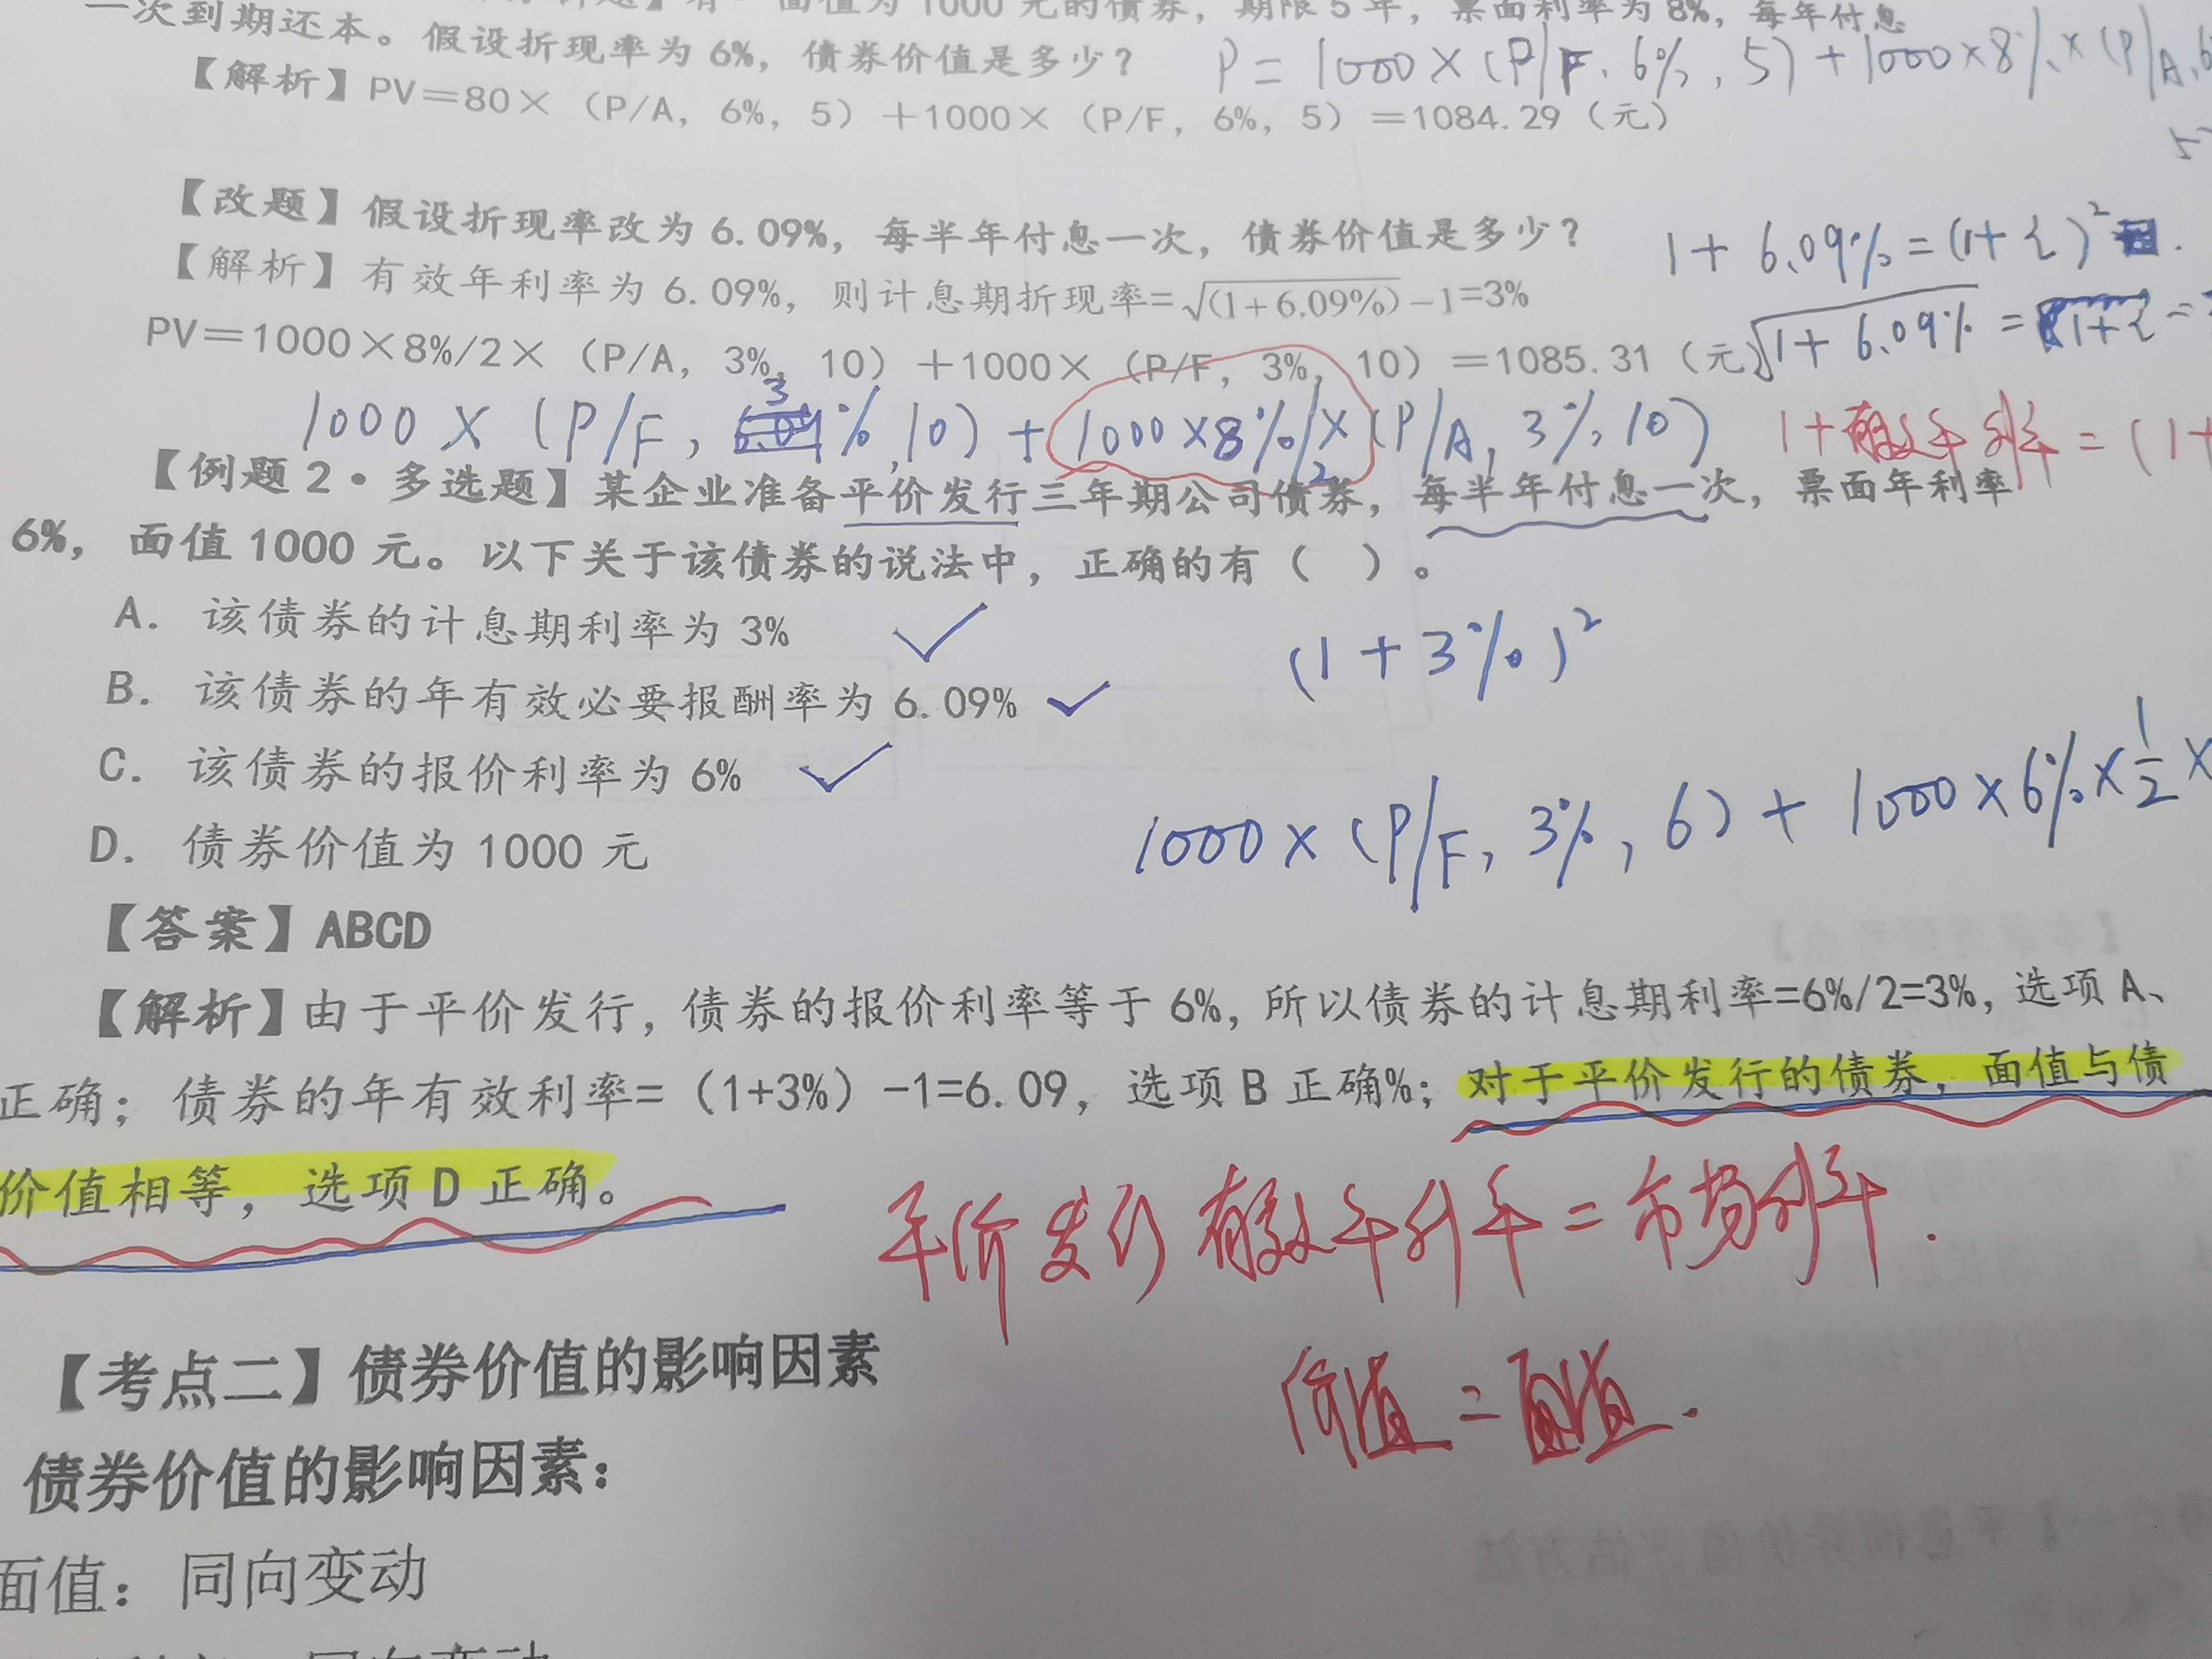 面值为1000元的债券，期限5年，票面利率为8%，每年付息
一次到期还本。假设折现率为6%，债券价值是多少？
P = 1000×(P/F, 6%, 5) + 1000×8%×(P/A, 6
5
【解析】PV=80×（P/A，6%，5）+1000×（P/F，6%，5）=1084.29（元）
【改题】假设折现率改为6.09%，每半年付息一次，债券价值是多少？
1 + 6.09% = (1+i)²
【解析】有效年利率为6.09%，则计息期折现率=√(1+6.09%)-1=3%
√1+6.09% = 1+i =
PV=1000×8%/2×（P/A，3%，10）+1000×（P/F，3%，10）=1085.31（元
1000 × (P/F, 3%, 10) + 1000×8%/2×(P/A, 3%, 10)
1+有效年利率 = (1+
【例题2·多选题】某企业准备平价发行三年期公司债券，每半年付息一次，票面年利率
6%，面值1000元。以下关于该债券的说法中，正确的有（ ）。
A. 该债券的计息期利率为3%
(1+3%)²
B. 该债券的年有效必要报酬率为6.09%
C. 该债券的报价利率为6%
1000×(P/F, 3%, 6) + 1000×6%×1/2×
D. 债券价值为1000元
【答案】ABCD
【解析】由于平价发行，债券的报价利率等于6%，所以债券的计息期利率=6%/2=3%，选项A、
正确；债券的年有效利率=（1+3%）-1=6.09，选项B正确%；对于平价发行的债券，面值与债
价值相等，选项D正确。
平价发行 有效年利率=市场利率.
价值=面值.
【考点二】债券价值的影响因素
债券价值的影响因素：
面值：同向变动
同向变动